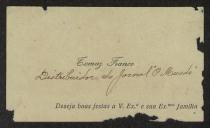 Tomaz Franco
Distribuidor do Jornal "O Mundo"
Deseja boas festas a V. Ex.ª e sua Ex.ma Familia